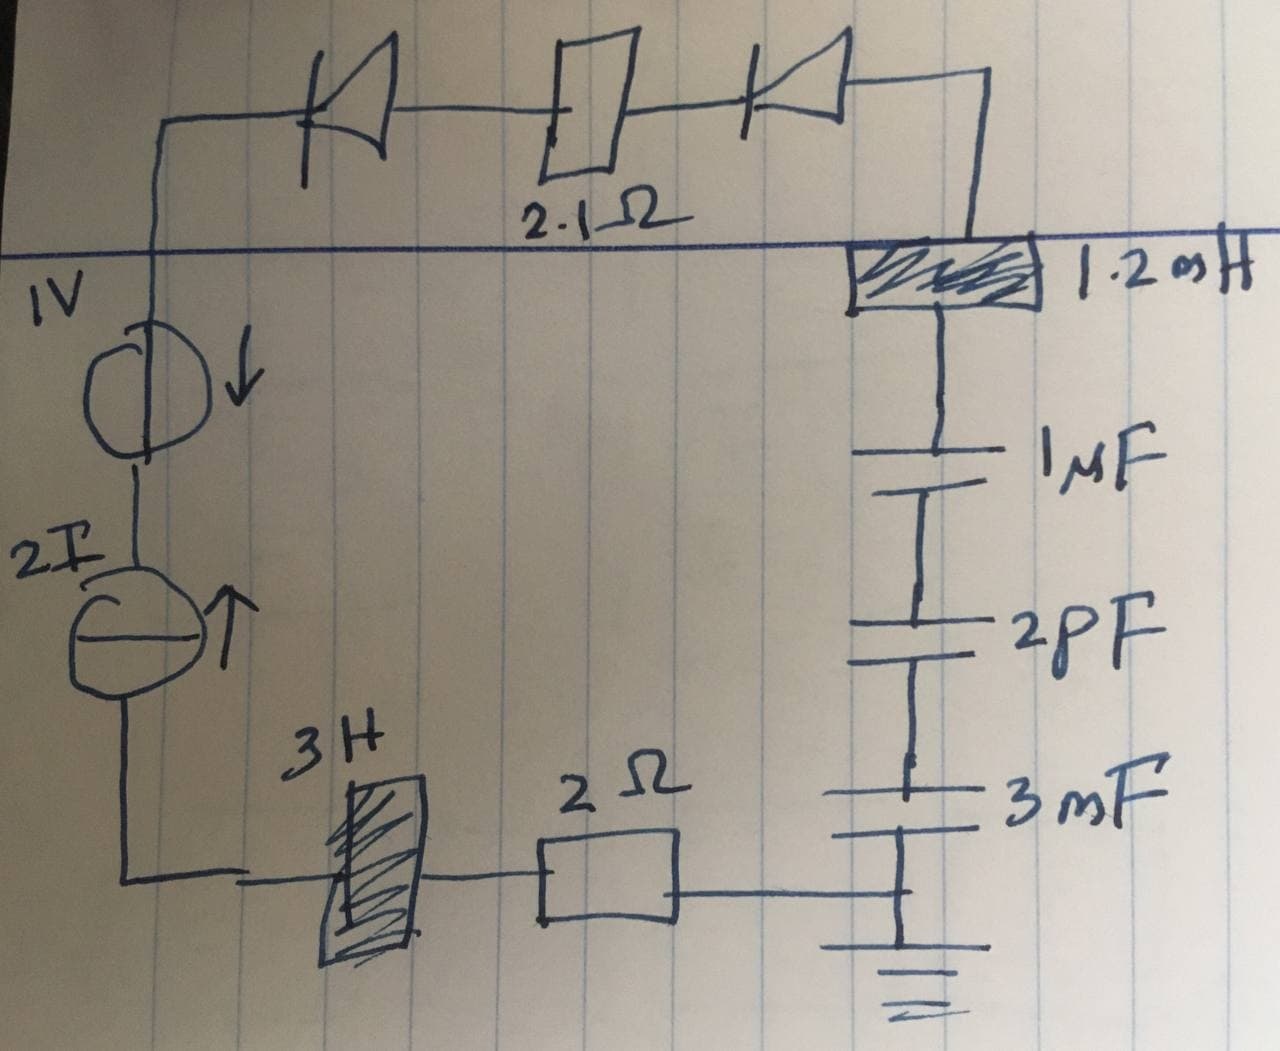 2.1 Ω
1V
1.2 mH
1μF
2I
2pF
3H
2 Ω
3 mF